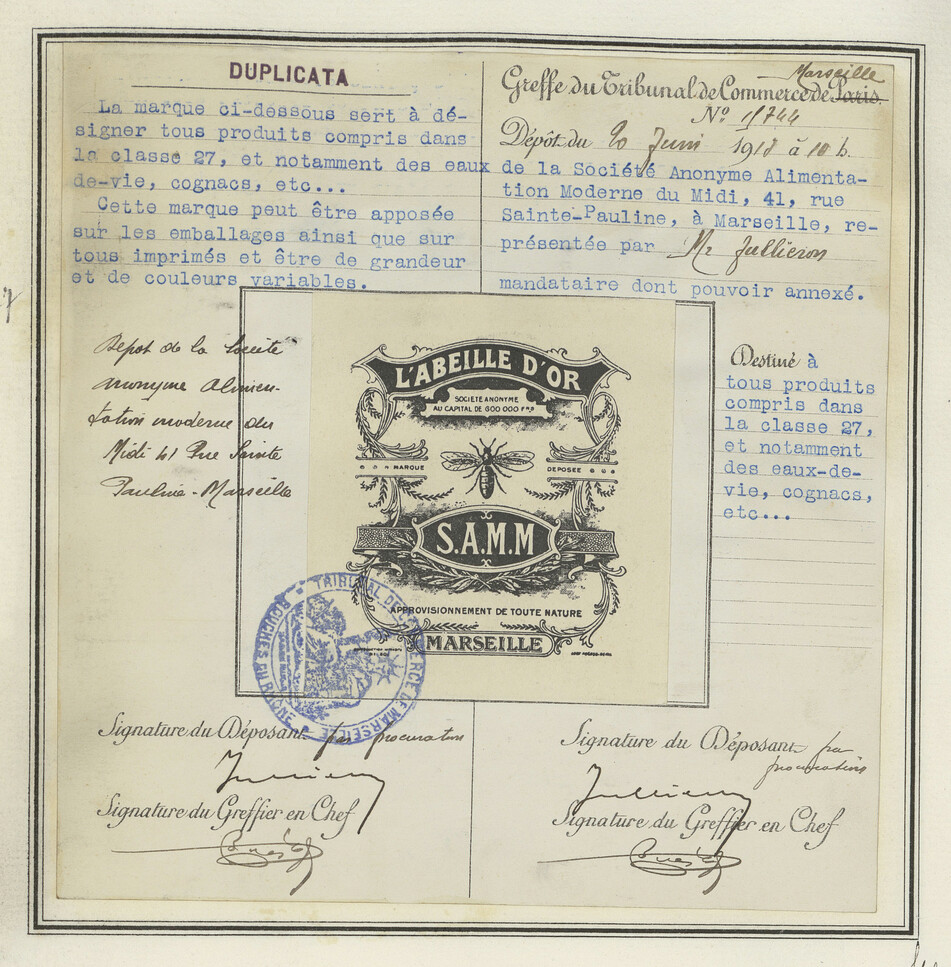 DUPLICATA
La marque ci-dessous sert à dé-
signer tous produits compris dans
la classe 27, et notamment des eaux
de-vie, cognacs, etc...
Cette marque peut être apposée
sur les emballages ainsi que sur
tous imprimés et être de grandeur
et de couleurs variables.
Marseille
Greffe du Tribunal de Commerce de Paris.
Nº 15744
Dépôt du 20 Juin 1918 à 10 h.
de la Société Anonyme Alimenta-
tion Moderne du Midi, 41, rue
Sainte-Pauline, à Marseille, re-
présentée par Mr Jullieron
mandataire dont pouvoir annexé.
Depot de la Société
anonyme Alimen-
tation moderne du
Midi 41 Rue Sainte
Pauline - Marseille
L'ABEILLE D'OR
SOCIETE ANONYME
AU CAPITAL DE 600 000 FRS
MARQUE DEPOSEE
S.A.M.M
APPROVISIONNEMENT DE TOUTE NATURE
MARSEILLE
TRIBUNAL DE COMMERCE DE MARSEILLE
BOUCHES DU RHÔNE
Destiné à
tous produits
compris dans
la classe 27,
et notamment
des eaux-de-
vie, cognacs,
etc...
Signature du Déposant par procuration
Signature du Greffier en Chef
Signature du Déposant par
procuration
Signature du Greffier en Chef